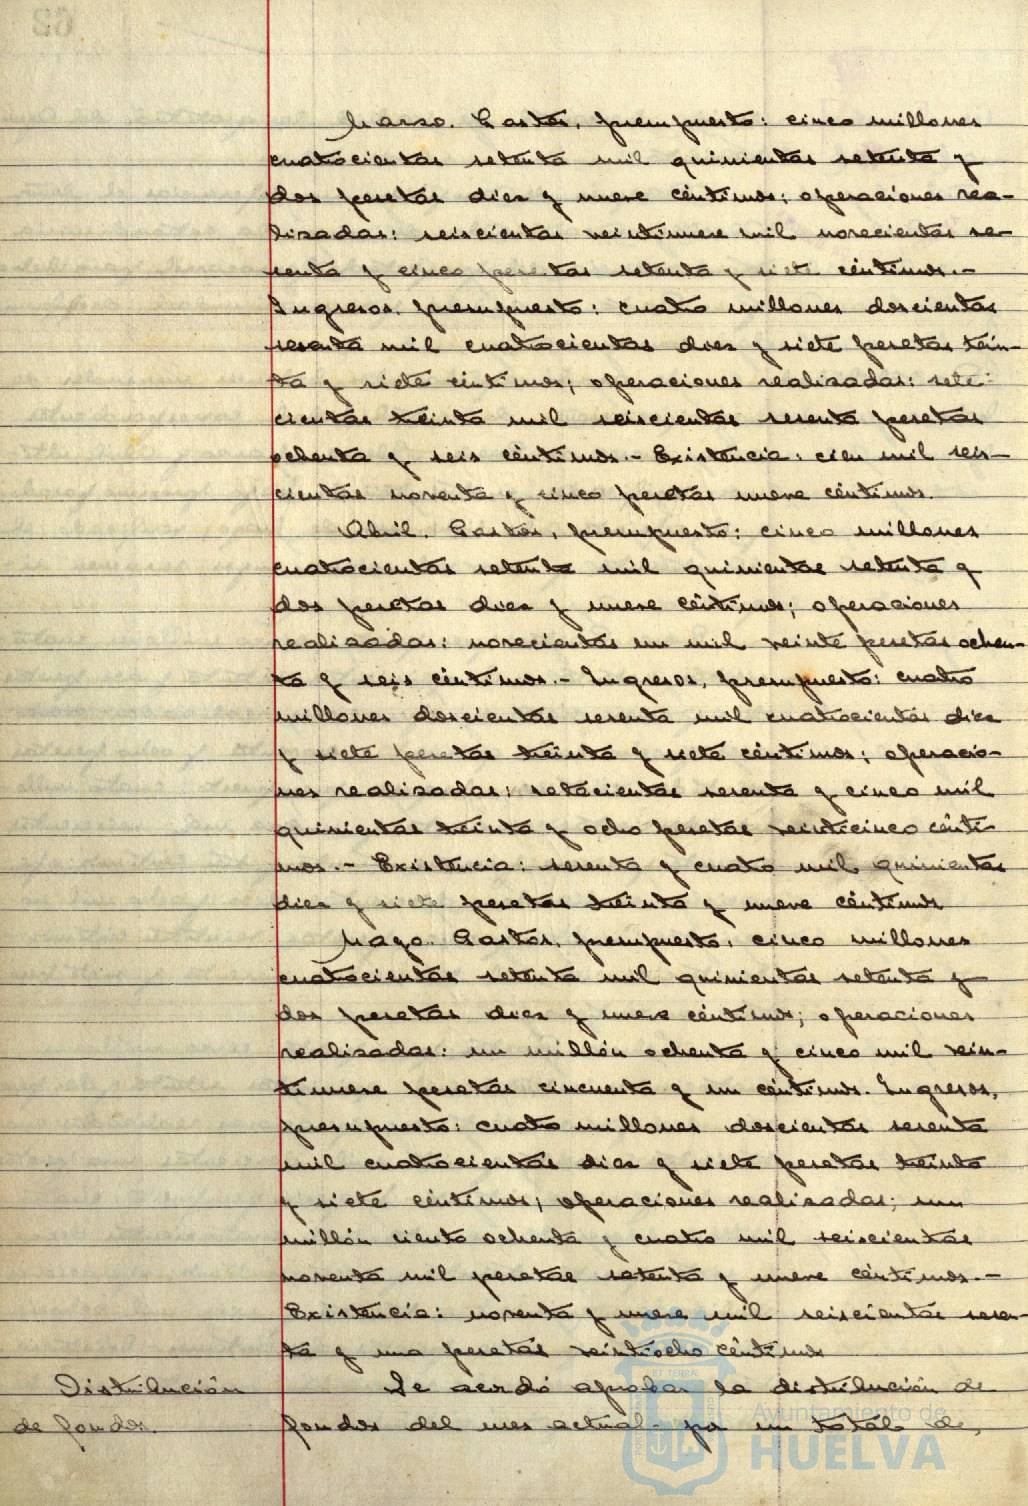 Marzo. Gastos, presupuesto: cinco millones
cuatrocientas setenta mil quinientas setenta y
dos pesetas diez y nueve céntimos; operaciones rea-
lizadas: seiscientas veintinueve mil novecientas se-
senta y cinco pesetas setenta y siete céntimos.-
Ingresos, presupuesto: cuatro millones doscientas
sesenta mil cuatrocientas diez y siete pesetas trein-
ta y siete céntimos; operaciones realizadas: sete-
cientas treinta mil seiscientas sesenta pesetas
ochenta y seis céntimos.- Existencia: cien mil seis-
cientas noventa y cinco pesetas nueve céntimos.
Abril. Gastos, presupuesto: cinco millones
cuatrocientas setenta mil quinientas setenta y
dos pesetas diez y nueve céntimos; operaciones
realizadas: novecientas un mil veinte pesetas ochen-
ta y seis céntimos.- Ingresos, presupuesto: cuatro
millones doscientas sesenta mil cuatrocientas diez
y siete pesetas treinta y siete céntimos; operacio-
nes realizadas: setecientas sesenta y cinco mil
quinientas treinta y ocho pesetas veinticinco cénti-
mos.- Existencia: sesenta y cuatro mil quinientas
diez y siete pesetas treinta y nueve céntimos
Mayo. Gastos, presupuesto: cinco millones
cuatrocientas setenta mil quinientas setenta y
dos pesetas diez y nueve céntimos; operaciones
realizadas: un millón ochenta y cinco mil vein-
tinueve pesetas cincuenta y un céntimos. Ingresos,
presupuesto: cuatro millones doscientas sesenta
mil cuatrocientas diez y siete pesetas treinta
y siete céntimos; operaciones realizadas: un
millón ciento ochenta y cuatro mil seiscientas
noventa mil pesetas setenta y nueve céntimos.-
Existencia: noventa y nueve mil seiscientas sesen-
ta y una pesetas veintiocho céntimos
Distribución
de fondos.
Se acordó aprobar la distribución de
fondos del mes actual por un total de,
Ayuntamiento de
HUELVA